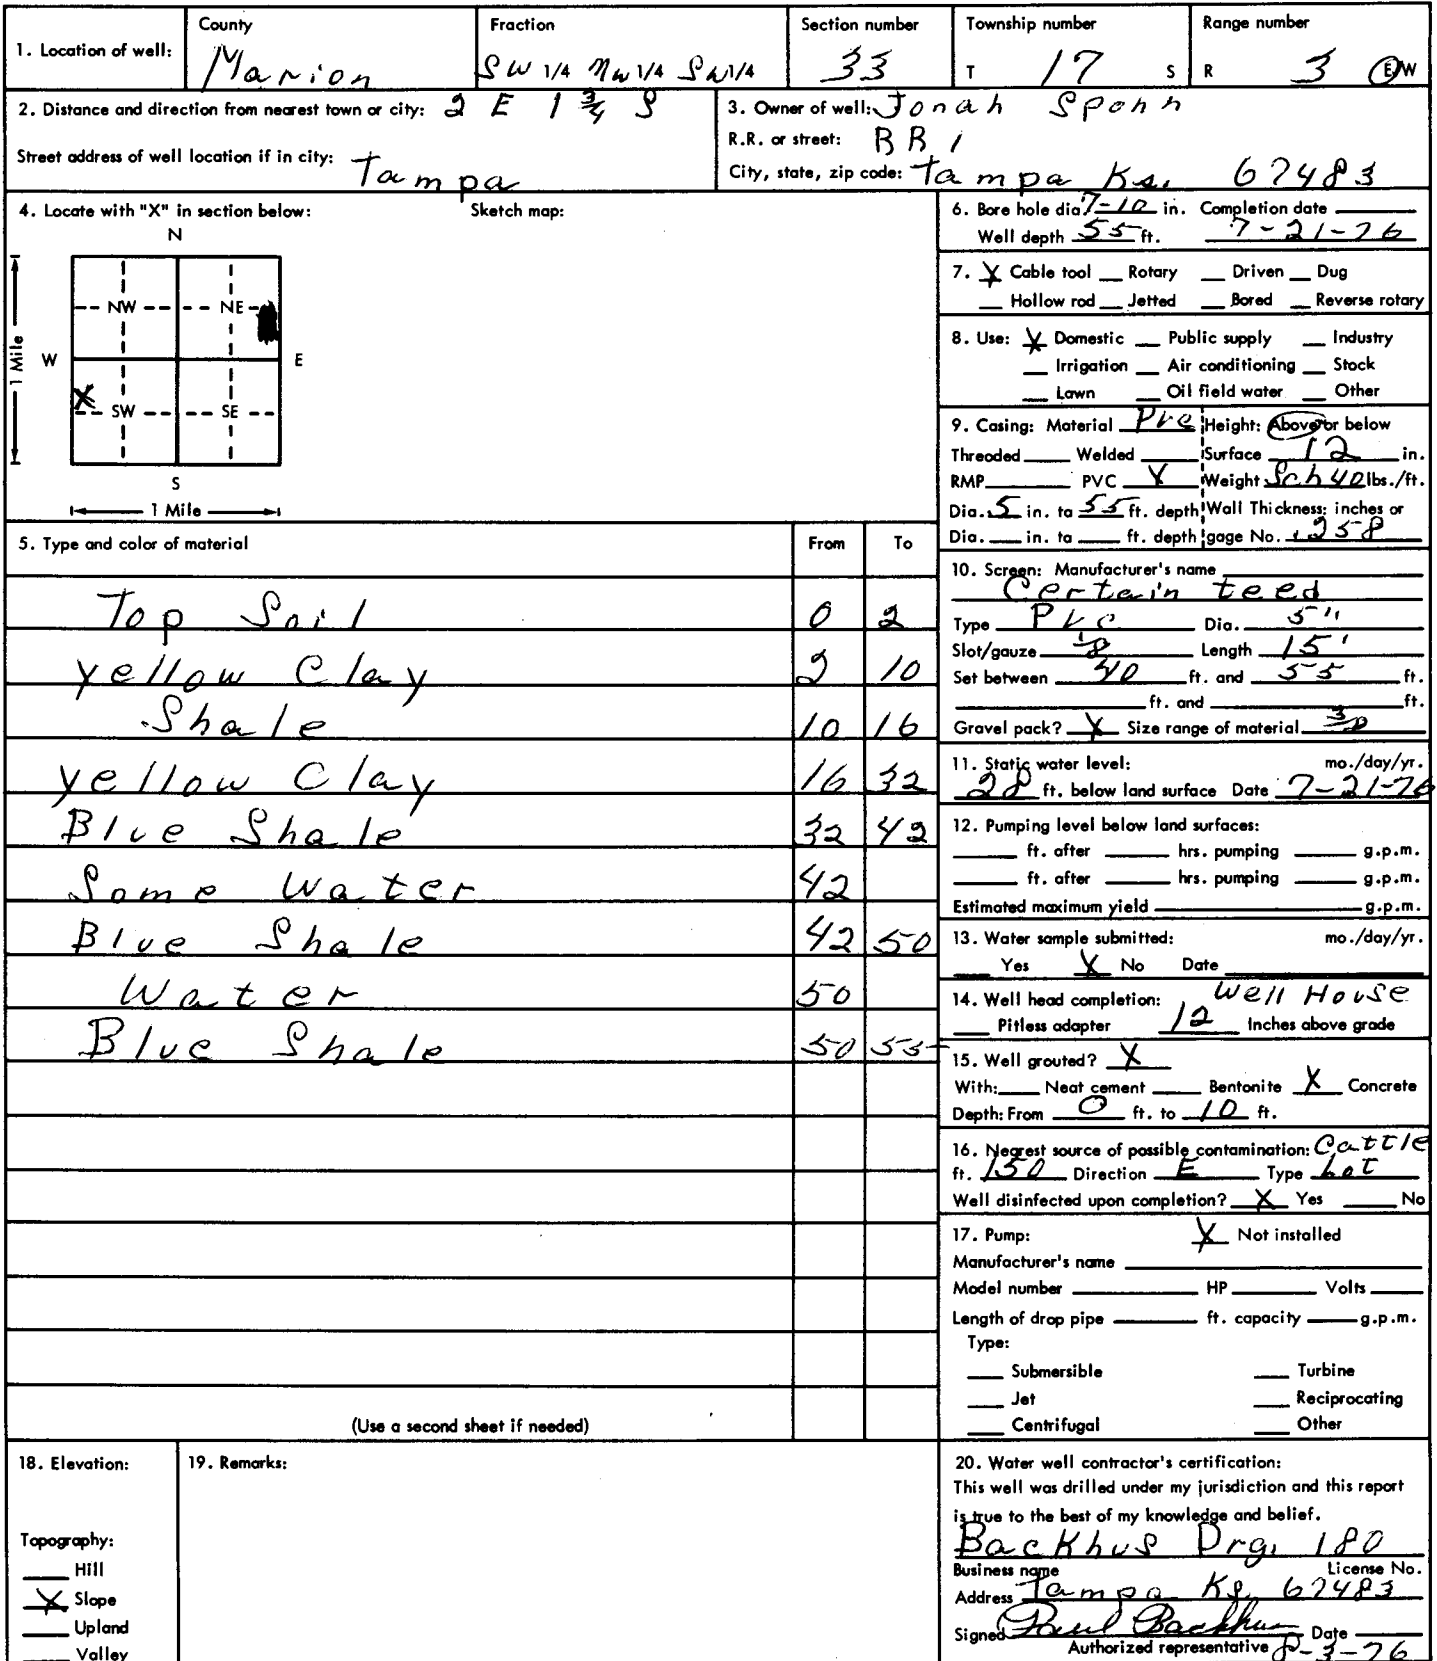 County Fraction Section number Township number Range number
1. Location of well: Marion SW 1/4 NW 1/4 SW 1/4 33 T 17 S R 3 E/W
2. Distance and direction from nearest town or city: 2 E 1 3/4 S
Street address of well location if in city: Tampa
3. Owner of well: Jonah Spohn
R.R. or street: RR 1
City, state, zip code: Tampa Ks. 67483
4. Locate with "X" in section below: Sketch map:
N
NW NE
W E
X
SW SE
S
1 Mile
1 Mile
5. Type and color of material From To
Top Soil 0 2
yellow Clay 2 10
Shale 10 16
yellow Clay 16 32
Blue Shale 32 42
Some Water 42
Blue Shale 42 50
Water 50
Blue Shale 50 55
(Use a second sheet if needed)
6. Bore hole dia. 7-10 in. Completion date
Well depth 55 ft. 7-21-76
7. X Cable tool __ Rotary __ Driven __ Dug
__ Hollow rod __ Jetted __ Bored __ Reverse rotary
8. Use: X Domestic __ Public supply __ Industry
__ Irrigation __ Air conditioning __ Stock
__ Lawn __ Oil field water __ Other
9. Casing: Material Pvc Height: Above or below
Threaded ___ Welded ___ Surface 12 in.
RMP ___ PVC X Weight Sch 40 lbs./ft.
Dia. 5 in. to 55 ft. depth Wall Thickness: inches or
Dia. ___ in. to ___ ft. depth gage No. .258
10. Screen: Manufacturer's name
Certain teed
Type Pvc Dia. 5"
Slot/gauze 1/8 Length 15'
Set between 40 ft. and 55 ft.
___ ft. and ___ ft.
Gravel pack? X Size range of material
11. Static water level: mo./day/yr.
28 ft. below land surface Date 7-21-76
12. Pumping level below land surfaces:
___ ft. after ___ hrs. pumping ___ g.p.m.
___ ft. after ___ hrs. pumping ___ g.p.m.
Estimated maximum yield ___ g.p.m.
13. Water sample submitted: mo./day/yr.
___ Yes X No Date ___
14. Well head completion: Well House
___ Pitless adapter 12 Inches above grade
15. Well grouted? X
With: ___ Neat cement ___ Bentonite X Concrete
Depth: From 0 ft. to 10 ft.
16. Nearest source of possible contamination: Cattle
ft. 150 Direction E Type Lot
Well disinfected upon completion? X Yes ___ No
17. Pump: X Not installed
Manufacturer's name ___
Model number ___ HP ___ Volts ___
Length of drop pipe ___ ft. capacity ___ g.p.m.
Type:
___ Submersible ___ Turbine
___ Jet ___ Reciprocating
___ Centrifugal ___ Other
18. Elevation:
Topography:
___ Hill
X Slope
___ Upland
___ Valley
19. Remarks:
20. Water well contractor's certification:
This well was drilled under my jurisdiction and this report
is true to the best of my knowledge and belief.
Backhus Drg. 180
Business name License No.
Address Tampa Ks. 67483
Signed Paul Backhus Date
Authorized representative 8-3-76